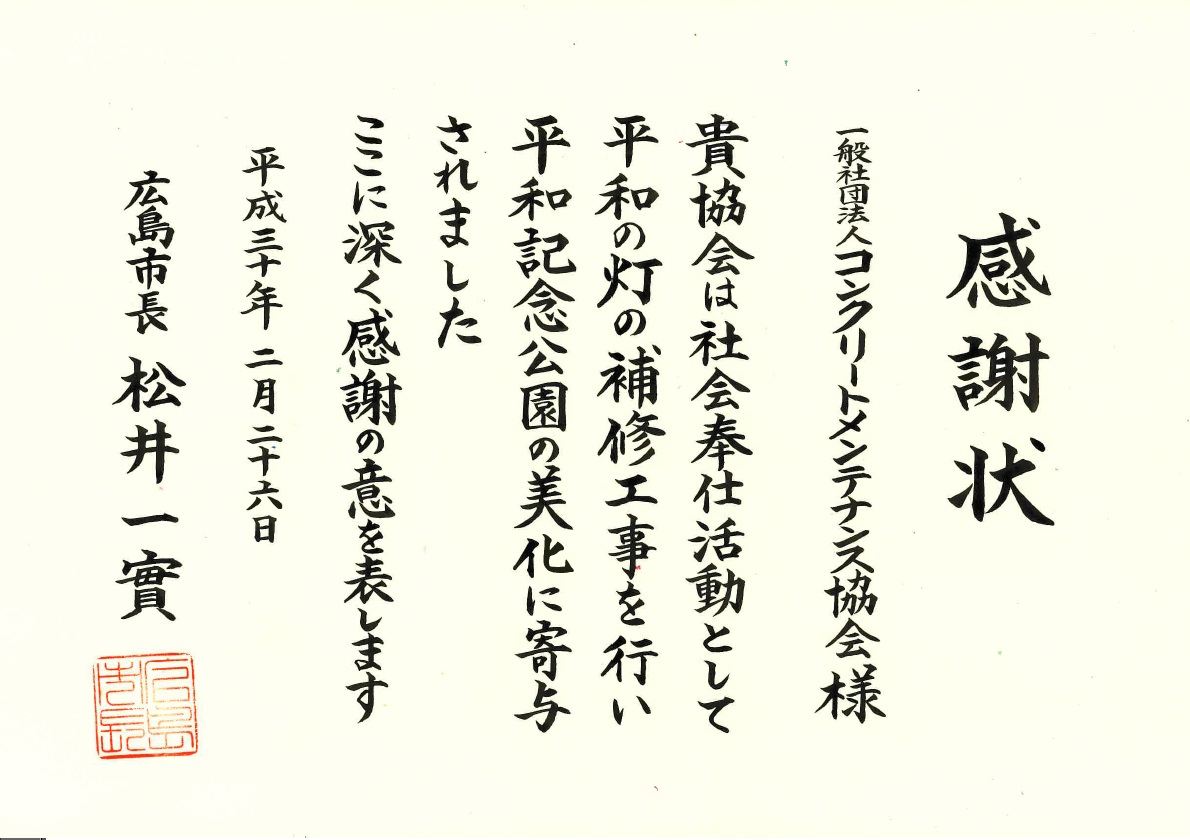 感謝状
一般社団法人コンクリートメンテナンス協会様
貴協会は社会奉仕活動として
平和の灯の補修工事を行い
平和記念公園の美化に寄与
されました
ここに深く感謝の意を表します
平成三十年 二月二十六日
広島市長 松井一實
広島
市長